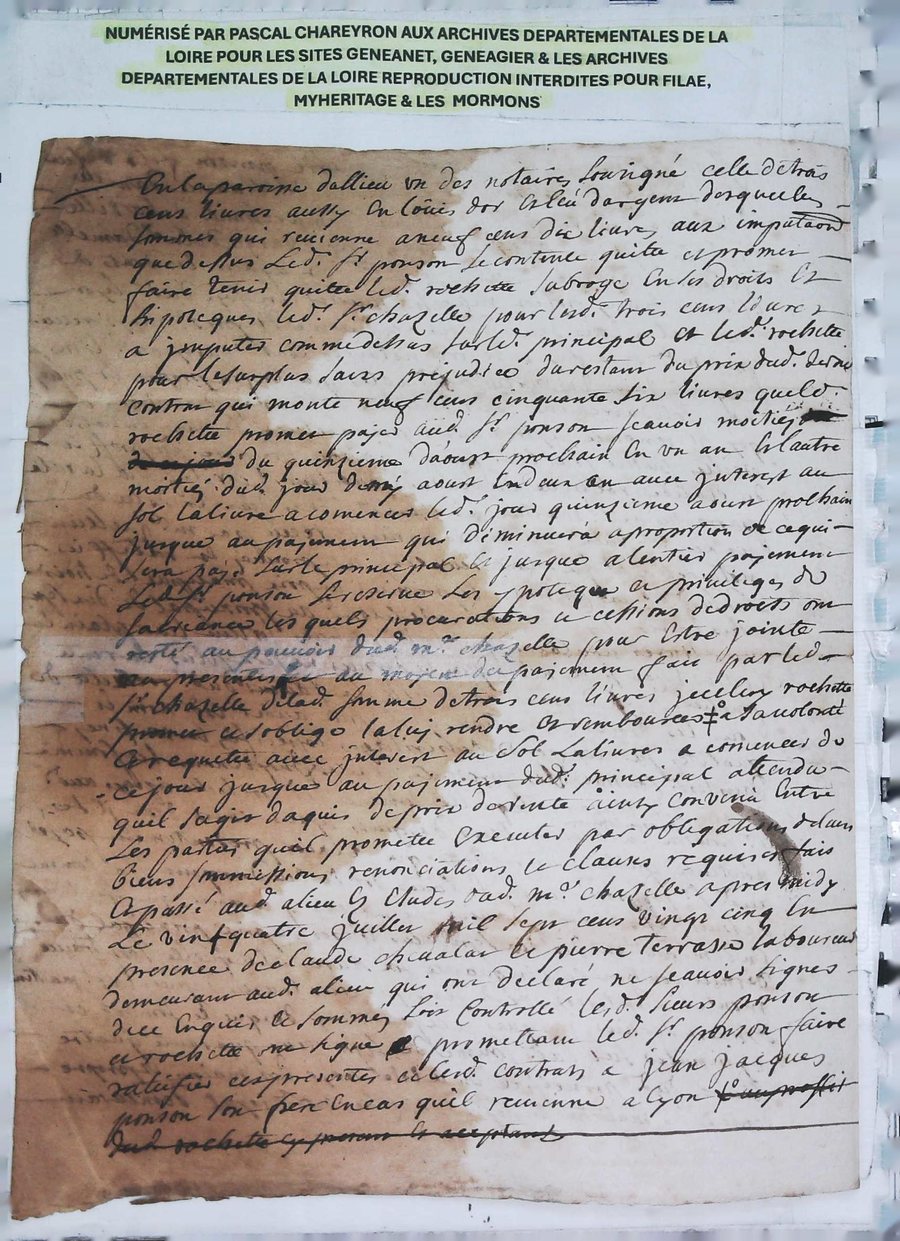 NUMÉRISÉ PAR PASCAL CHAREYRON AUX ARCHIVES DEPARTEMENTALES DE LA
LOIRE POUR LES SITES GENEANET, GENEAGIER & LES ARCHIVES
DEPARTEMENTALES DE LA LOIRE REPRODUCTION INTERDITES POUR FILAE,
MYHERITAGE & LES MORMONS
En la paroisse dallieu un des notaires souligné celle de trois
cens livres aussy en louis dor et leu dargent desquelles
sommes qui revienne a neuf cens dix livres aux imputaons
que dessus led. sr. ponson se contente quitte et promet
faire tenir quitte led. rochette subroge en ses droits et
hipoteques led. sr. chazelle pour lesd. trois cens livres
a jmputer comme dessus sur led. principal et led. rochette
pour le surplus sans prejudice du restant du prix dud. dernier
contrat qui monte neuf cens cinquante six livres que led.
rochette promet payer aud. sr. ponson scavoir moitié
du quinzieme daoust prochain en un an et lautre
moitié dud. jour aoust en deux an avec jnterest au
sol la livre a comencer led. jour quinzieme aoust prochain
jusque au paiement qui diminuera a proportion de ce qui
sera payé sur le principal et jusque a lentier paiement
led. sr. ponson se reserve les ypoteque et privileges de
sa creance les quels procurations et cessions de droits ont
resté au pouvoir dud. mr. chazelle pour estre jointe
au moyen du paiement fait par led.
sr. chazelle de lad. somme de trois cens livres jceluy rochette
promet et soblige la luy rendre et rembourcer a sa volonté
et requette avec jnterest au sol la livres a comencer de
ce jour jusque au paiement dud. principal attendu
quil sagit daquis de prix de vente ainsy convenu entre
les parties quil promette executer par obligations de leurs
biens soumissions renonciations et clauses requises fait
et passé aud. alieu es etudes dud. mr. chazelle apres midy
le vint quatre juillet mil sept cens vingt cinq en
presence de claude chevalar et pierre terrasse laboureur
demeurant aud. alieu qui ont declaré ne scavoir signer
de ce enquis et sommés sois controllé lesd. sieurs ponson
et rochette ont signé promettant led. sr. ponson faire
ratiffier ces presentes et lesd. contrats a jean jacques
ponson son frere en cas quil revienne a lyon au proffit
dud. rochette cy present et acceptant